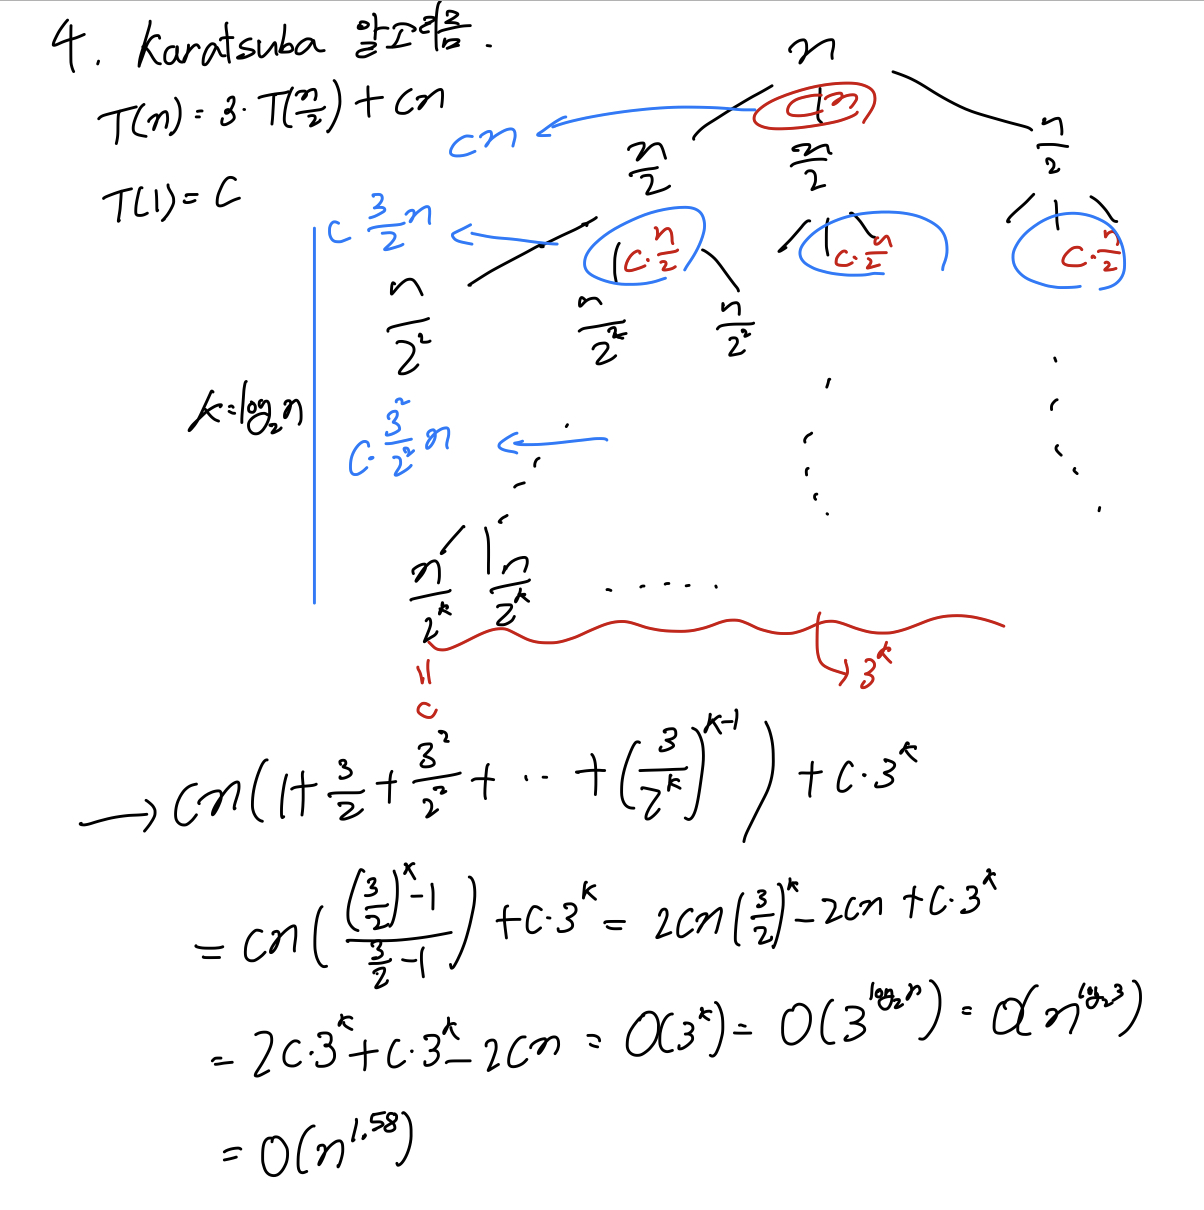 4. Karatsuba 알고리즘.
n
T(n) = 3·T(n/2) + cn
cn
cn
n/2 n/2 n/2
T(1) = C
c 3/2 n
c·n/2 c·n/2 c·n/2
n/2² n/2² n/2²
k=log₂n
C·3²/2² n
n/2ᵏ n/2ᵏ ·····
→ 3ᵏ
=
c
→ cn(1+3/2+3²/2²+ ·· +(3/2ᵏ)ᵏ⁻¹) + c·3ᵏ
= cn(((3/2)ᵏ-1)/(3/2-1)) + c·3ᵏ = 2cn(3/2)ᵏ - 2cn + c·3ᵏ
= 2c·3ᵏ + c·3ᵏ - 2cn = O(3ᵏ) = O(3^(log₂n)) = O(n^(log₂3))
= O(n^1.58)